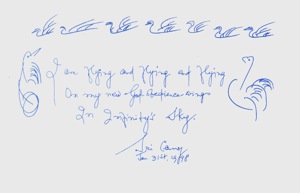 I am flying and flying and flying
On my new-God-obedience-wings
In Infinity's Sky.
Sri Chinmoy
Jan 31st 1998